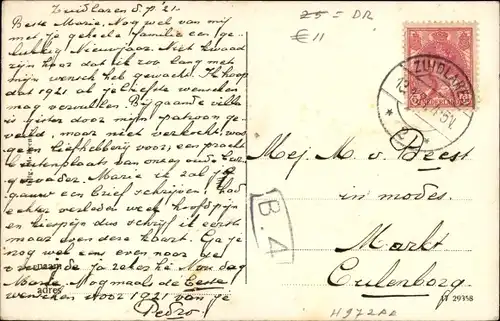 Zuidlaren 5/1 '21.
Beste Marie. Nog wel van mij
met je geheele familie een ge-
lukkig Nieuwjaar. Niet kwaad
zijn hoor dat ik zoo lang met
mijn wensch heb gewacht. Ik hoop
dat 1921 al je liefste wenschen
mag vervullen. Bijgaande villa
is gister door mijn patroon ge-
veild, maar niet verkocht, was
geen liefhebberij voor, een pracht
buitenplaats van onzen oude bur-
gervader. Marie ik zal je
gauw een brief schrijven, had
echter verleden week hoofdpijn
en kiespijn dus schrijf ik eerst
maar even deze kaart. Ga je
nog wel eens even naar de
ja zeker hé Nou dag
Marie. Nogmaals de beste
wenschen voor 1921 van je
Pedro.
adres
25 = DR
€ 11
ZUIDLAREN
Mej. M. v. Beest
in modes.
Markt
Culenborg.
B. 4
LT 29358